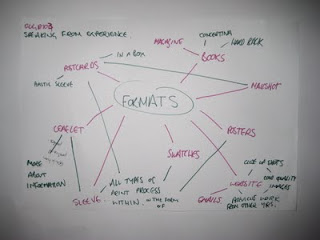 SPEAKING FROM EXPERIENCE.
CONCERTINA
MAGAZINE
HARD BACK
IN A BOX
BOOKS
POSTCARDS
PLASTIC SLEEVE
MAILSHOT
FORMATS
LEAFLET
POSTERS
SWATCHES
MORE
ABOUT
INFORMATION
ALL TYPES OF
PRINT PROCESS
WITHIN. IN THE FORM
OF
SLEEVE.
WEBSITE
EMAILS
GOOD QUALITY
IMAGES
PREVIOUS WORK
FROM OTHER YRS.